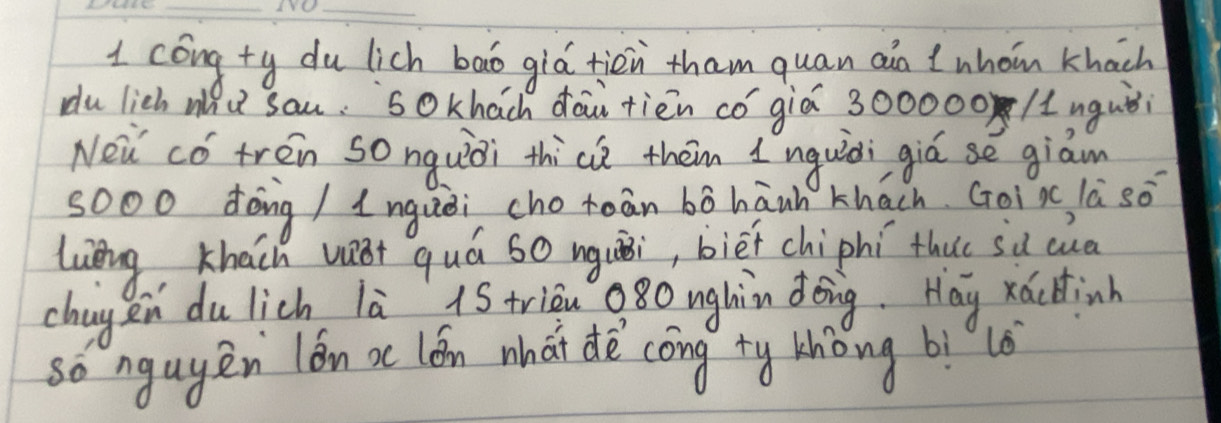 Date NO
1 công ty du lich baó giá tiền tham quan của 1 nhóm khách
du lich như sau: 50 khách đầu tiên có giá 300000/1 người
Nếu có trên 50 người thì cứ thêm 1 người giá sẽ giảm
5000 đồng / 1 người cho toàn bô hành khách. Goi x là số
lường khách vượt quá 50 người, biết chi phí thưc sư của
chuyến du lich là 15 triêu 080 nghìn đồng. Hãy xác định
số nguyên lớn x lớn nhất để công ty không bi lỗ